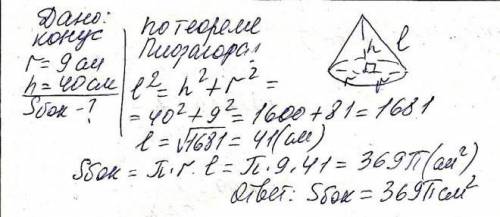 Дано:
конус
r = 9 см
h = 40 см
Sбок - ?
по теореме
Пифагора:
l² = h² + r² =
= 40² + 9² = 1600 + 81 = 1681
l = √1681 = 41 (см)
h l
r r
Sбок = П · r · l = П · 9 · 41 = 369П (см²)
Ответ: Sбок = 369П см²